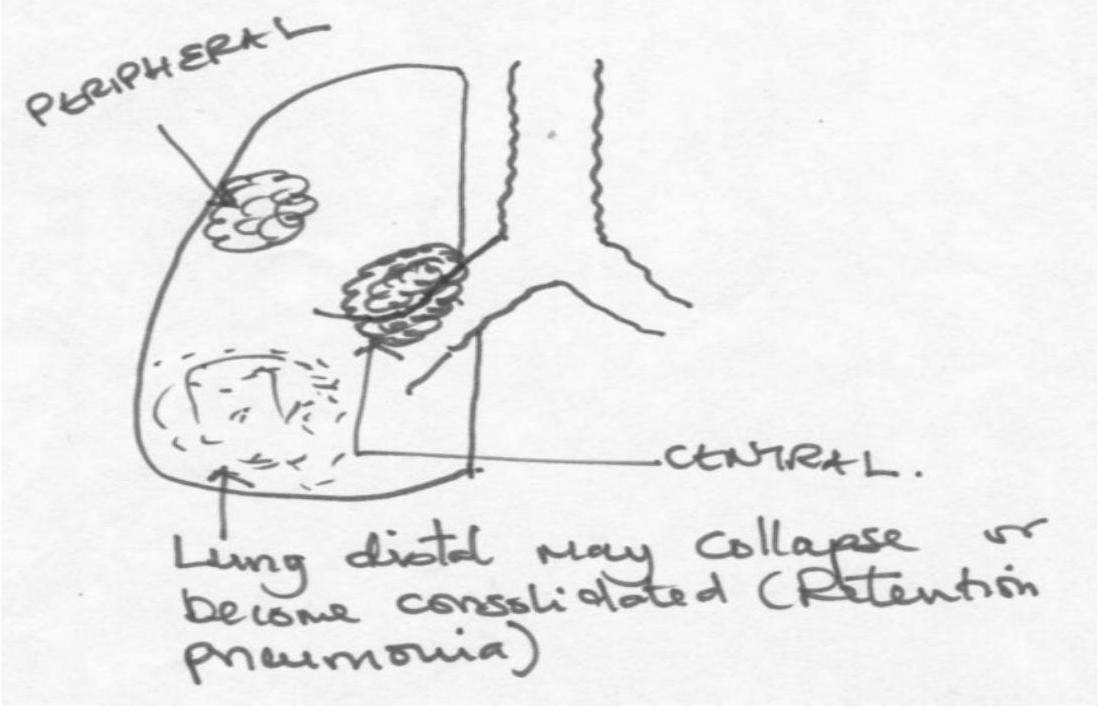 PERIPHERAL
CENTRAL.
Lung distal may collapse or
become consolidated (Retention
pneumonia)